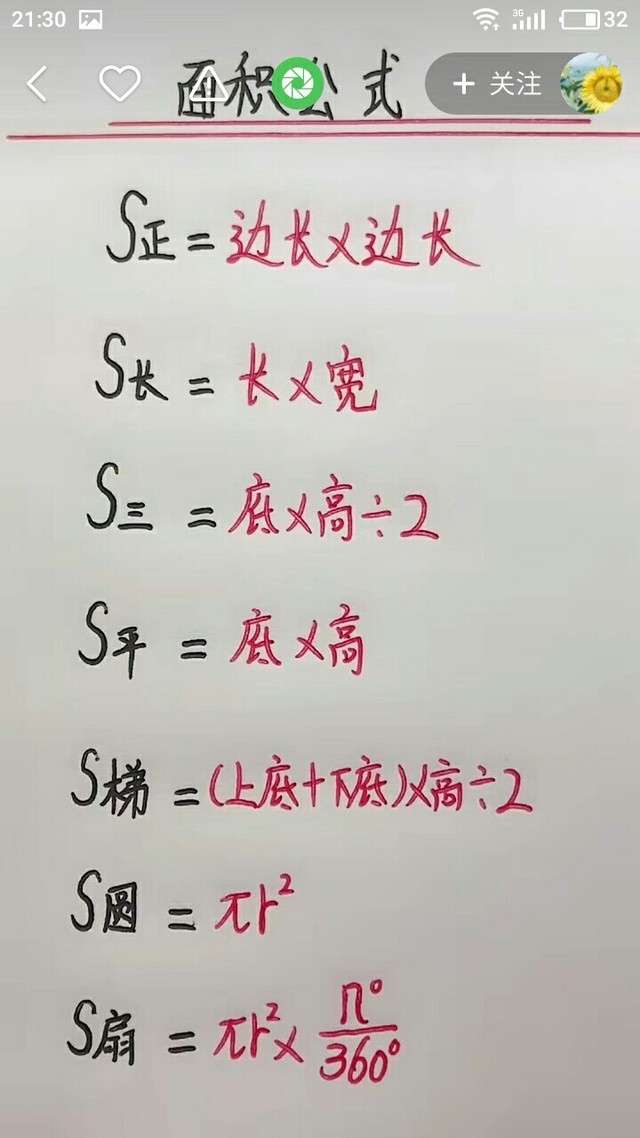 21:30 3G 32
面积公式
+ 关注
S正 = 边长×边长
S长 = 长×宽
S三 = 底×高÷2
S平 = 底×高
S梯 = (上底+下底)×高÷2
S圆 = πr²
S扇 = πr²× n°/360°